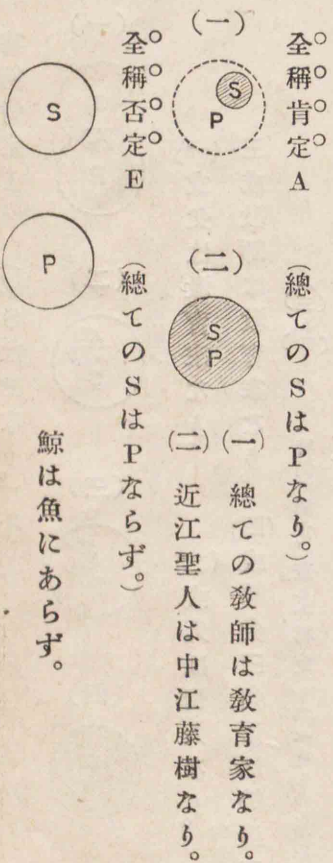 全稱肯定A (總てのSはPなり。)
(一) S P (二) S P
(一) 總ての教師は教育家なり。
(二) 近江聖人は中江藤樹なり。
全稱否定E (總てのSはPならず。)
S P 鯨は魚にあらず。